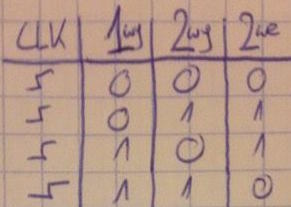 CLK 1wy 2wy 2we
0 0 0
0 1 1
1 0 1
1 1 0